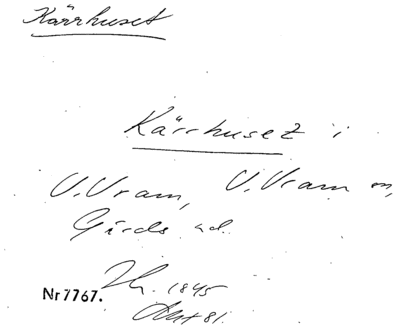 Kärrhuset
Kärrhuset i
V. Vram, V. Vram sn,
Gärds hd.
Nr 7767.
1845
81.